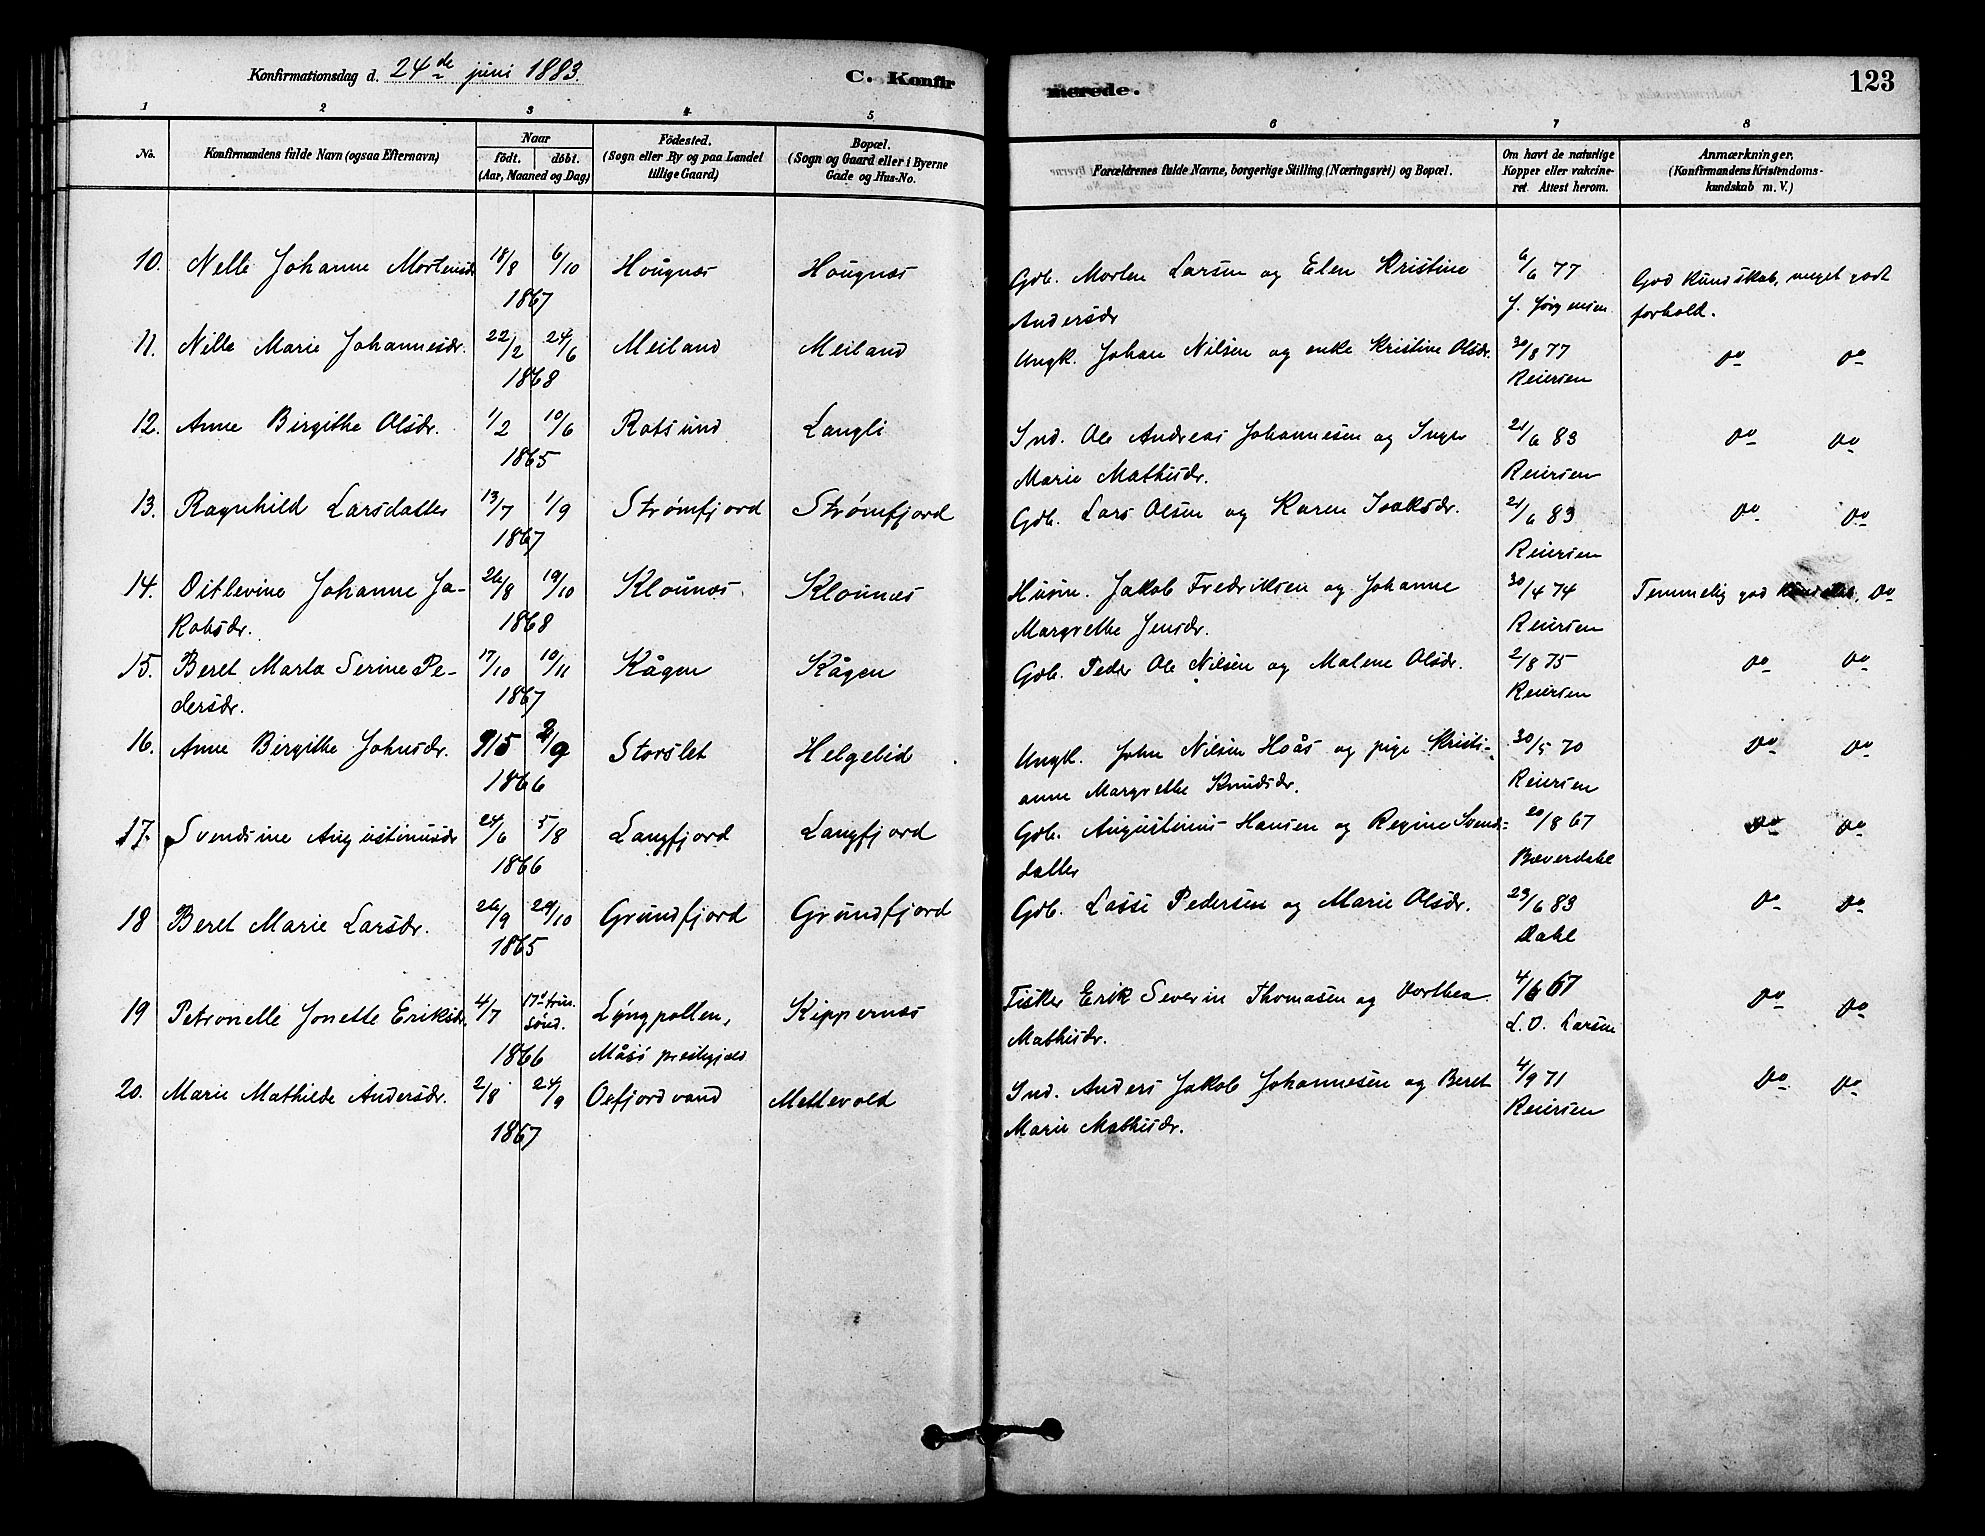 Konfirmationsdag d. 24de juni 1883.
C. Konfirmerede.
123
1 2 3 4 5 6 7 8
No.
Konfirmandens fulde Navn (ogsaa Efternavn)
Naar
födt. döbt.
(Aar, Maaned og Dag)
Födested.
(Sogn eller By og paa Landet
tillige Gaard)
Bopæl.
(Sogn og Gaard eller i Byerne
Gade og Hus-No.
Forældrenes fulde Navne, borgerlige Stilling (Næringsvei) og Bopæl.
Om havt de naturlige
Kopper eller vakcineret
Attest herom.
Anmærkninger.
(Konfirmandens Kristendomskundskab
m. V.)
10. Nelle Johanne Mortensdr 18/8 6/10 Hougnæs Hougnæs Gdb. Morten Larsen og Elen Kristine 6/6 77 God kundskab, meget godt
1867 Andersdr J. Jörgensen forhold.
11. Nille Marie Johannesdr. 22/2 24/6 Meiland Meiland Ungk. Johan Nilsen og enke Kristine Olsdr. 30/8 77 Do Do
1868 Reiersen
12. Anne Birgithe Olsdr. 1/2 10/6 Rotsund Langli Ind. Ole Andreas Johannesen og Inger 21/6 83 Do Do
1865 Marie Mathisdr. Reiersen
13. Ragnhild Larsdatter 13/7 1/9 Strømfjord Strømfjord Gdb. Lars Olsen og Karen Isaksdr. 21/6 83 Do Do
1867 Reiersen
14. Ditlevine Johanne Ja- 26/8 19/10 Klounæs Klounæs Husm. Jakob Fredriksen og Johanne 30/4 74 Temmelig god kundskab, Do
kobsdr. 1868 Margrethe Jensdr. Reiersen
15. Beret Marta Serine Pe- 17/10 10/11 Kågen Kågen Gdb. Peder Ole Nilsen og Malene Olsdr. 2/8 75 Do Do
dersdr. 1867 Reiersen
16. Anne Birgithe Johnsdr. 9/5 2/9 Storslet Helgelid Ungk. John Nilsen Hoås og pige Kristi- 30/5 70 Do Do
1866 anne Margrethe Knudsdr. Reiersen
17. Svendsine Augustinusdr 24/6 5/8 Langfjord Langfjord Gdb. Augustinus Hansen og Regine Svends- 20/8 67 Do Do
1866 datter Bæverdahl
18 Beret Marie Larsdr. 26/9 29/10 Grundfjord Grundfjord Gdb. Lasse Pedersen og Marie Olsdr. 23/6 83 Do Do
1865 Dahl
19 Petronelle Jonette Eriksdr. 4/7 17d trin. sönd. Lyngpollen, Kippernæs Fisker Erik Severin Thomasen og Dorthea 4/6 67 Do Do
1866 Måsö prestegjeld Mathisdr. L. O. Larsen
20. Marie Mathilde Andersdr. 2/8 24/9 Oxfjordvand Mettevold Ind. Anders Jakob Johannesen og Beret 4/9 71 Do Do
1867 Marie Mathisdr. Reiersen